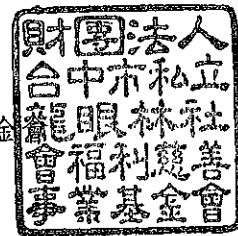 財團法人
台中市私立
龍眼林社
會福利慈善
事業基金會
金